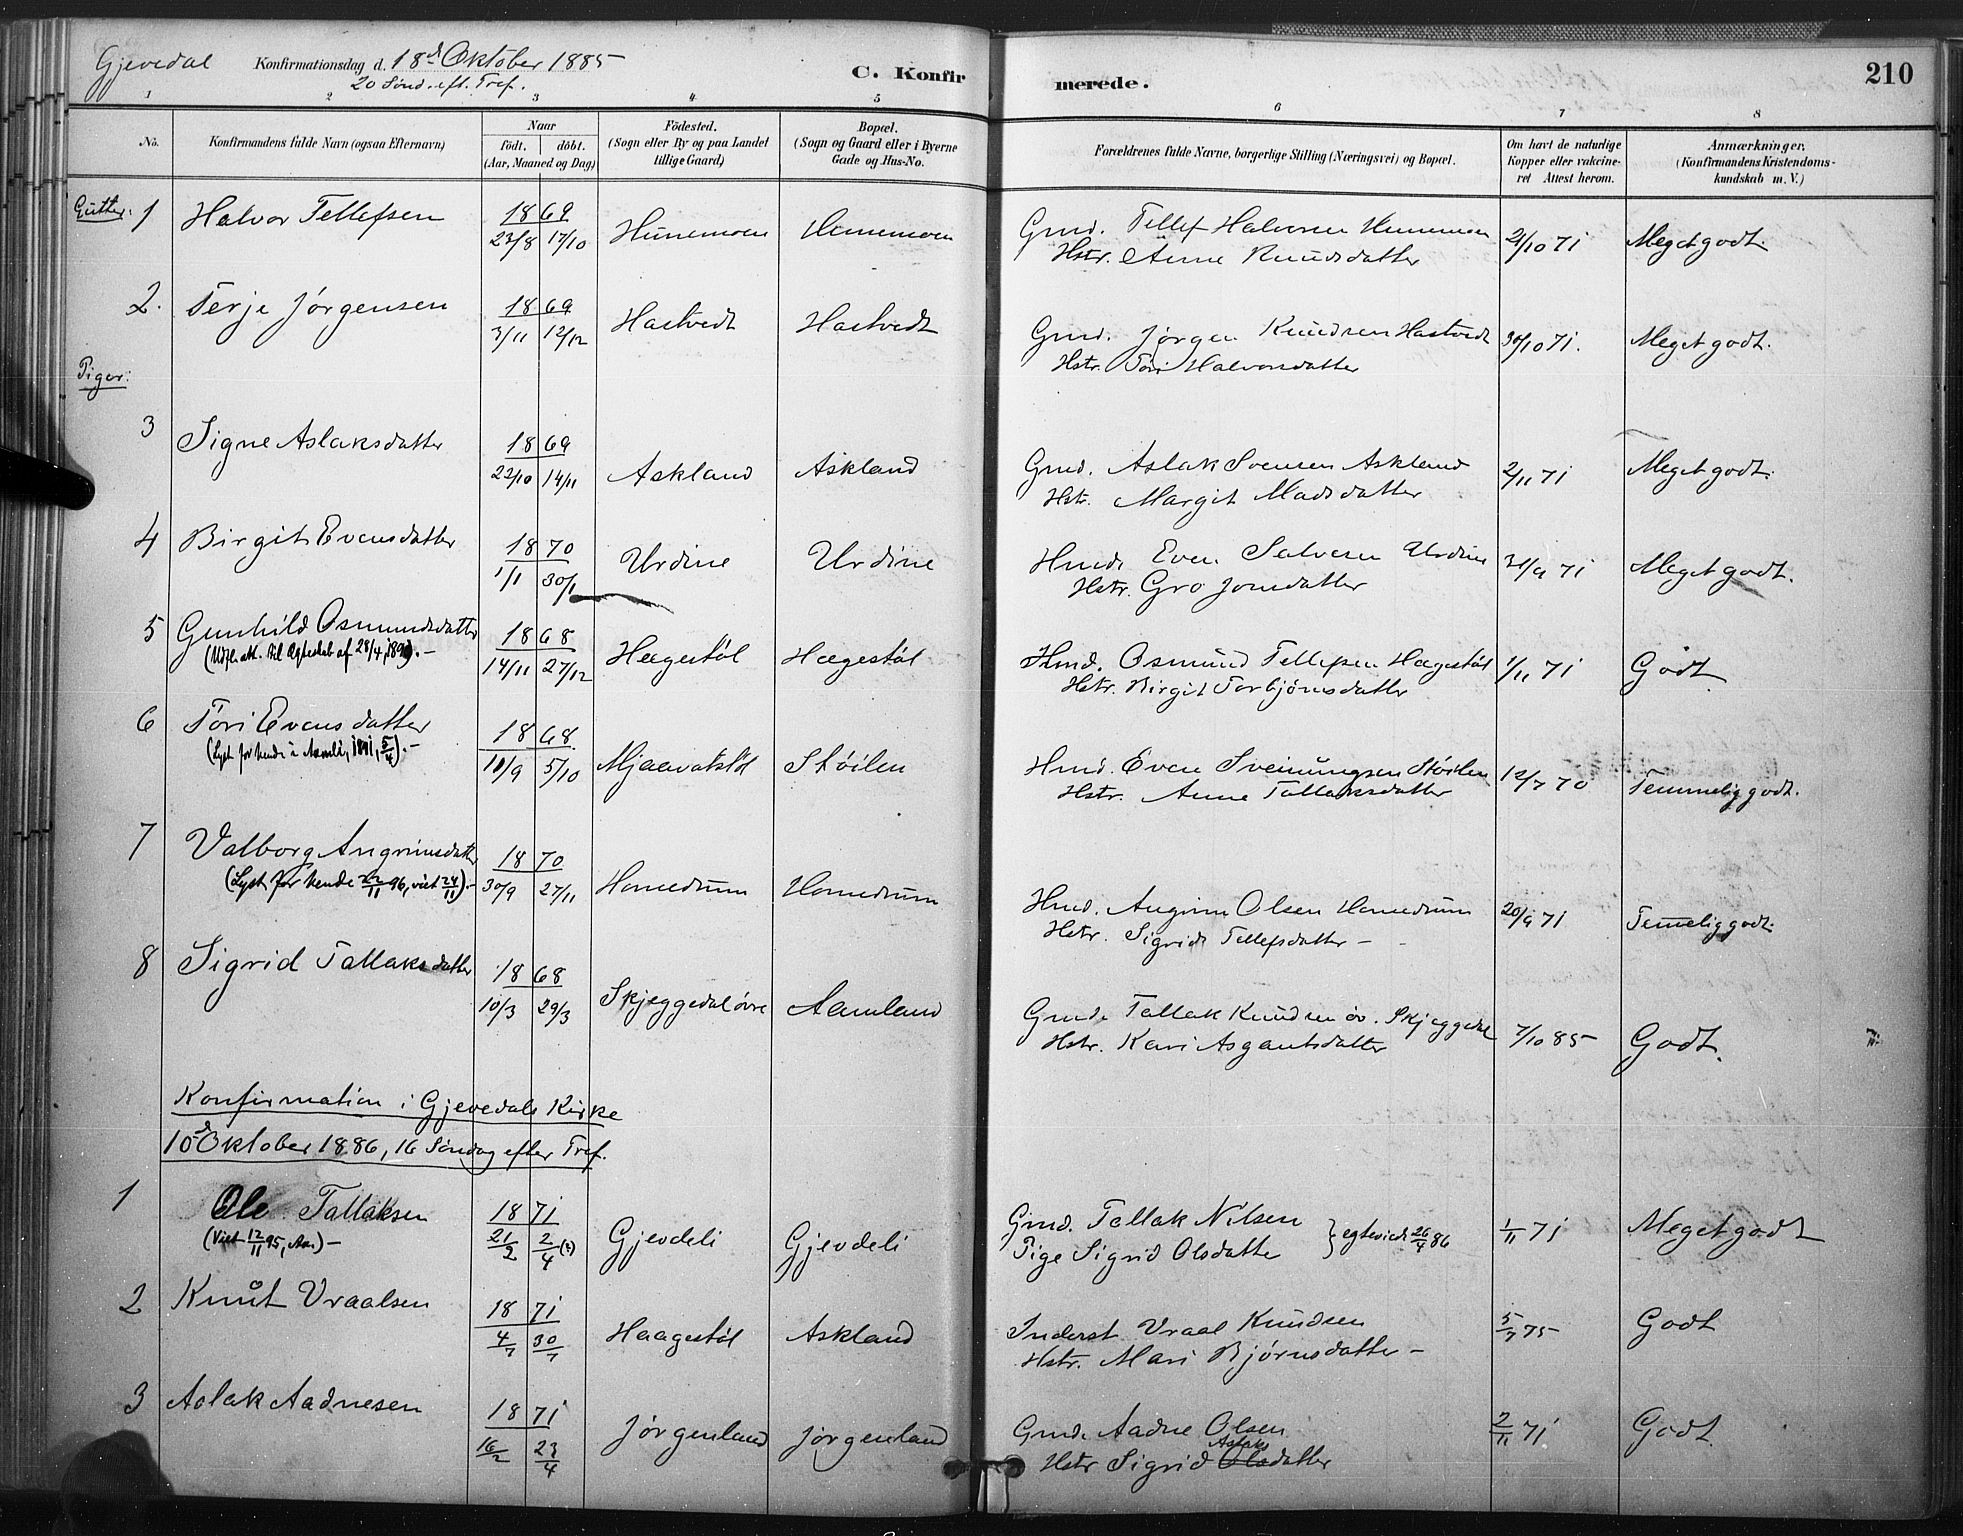 Gjevedal Konfirmationsdag d. 18d Oktober 1885
20 Sønd. eft. Tref.
C. Konfirmerede.
210
1 2 3 4 5 6 7 8
No.
Konfirmandens fulde Navn (ogsaa Efternavn)
Naar
födt. döbt.
(Aar, Maaned og Dag)
Födested.
(Sogn eller By og paa Landet
tillige Gaard)
Bopæl.
(Sogn og Gaard eller i Byerne
Gade og Hus-No.
Forældrenes fulde Navne, borgerlige Stilling (Næringsvei) og Bopæl.
Om havt de naturlige
Kopper eller vakcine-
ret Attest herom.
Anmærkninger.
(Konfirmandens Kristendoms-
kundskab m. V.)
Gutter: 1 Halvor Tellefsen 1869 Hunemoen Hunemoen Gmd. Tellef Halvorsen Hunemoen 21/10 71 Meget godt.
23/8 17/10 Hstr. Anne Knudsdatter
2. Terje Jörgensen 1869 Hastvedt Hastvedt Gmd. Jørgen Knudsen Hastvedt 30/10 71. Meget godt.
3/11 12/12 Hstr. Tori Halvorsdatter
Piger:
3 Signe Aslaksdatter 1869 Askland Askland Gmd. Aslak Svensen Askland 2/11 71 Meget godt.
22/10 14/11 Hstr. Margit Madsdatter
4 Birgit Evensdatter 1870 Urdine Urdine Hmd. Even Salvesen Urdine 30/9 71 Meget godt.
1/1 30/1 Hstr. Gro Jonsdatter
5 Gunhild Osmundsdatter 1868 Hægestøl Hægestøl Hmd. Osmund Tellefsen Hægestøl 1/11 71 Godt
(Udfl. att. til Ægteskab af 28/4, ).- 14/11 27/12 Hstr. Birgit Torbjörnsdatter
6 Tori Evensdatter 1868 Mjaavatstöl Støilen Hmd. Even Sveinungsen Støilen 12/7 70 Temmelig godt.
(Lyst for hende i Aamli, 1891, 5/4).- 11/9 5/10 Hstr. Anne Tallaksdatter
7 Valborg Angrimsdatter 1870 Homdrum Homdrum Hmd. Angrim Olsen Homdrum 20/9 71 Temelig godt.
(Lyst for hende 22/11 96, viet 24/11).- 30/9 27/11 Hstr. Sigrid Tellefsdatter -
8 Sigrid Tallaksdatter 1868 Skjeggedal övre Aamland Gmd. Tallak Knudsen öv. Skjeggedal 7/10 85 Godt.
10/3 29/3 Hstr. Kari Asgautsdatter
Konfirmation i Gjevedals Kirke
10d Oktober 1886, 16 Søndag efter Tref.
1 Ole Tallaksen 1871 Gjevdeli Gjevdeli Gmd. Tallak Nilsen } egteviet 26/4 86 1/11 71 Meget godt
(Viet 12/11 95, Aa.)- 21/2 2/4 (?) Pige Sigrid Olsdatter
2 Knut Vraalsen 1871 Haagestøl Askland Inderst Vraal Knudsen 5/7 75 Godt
4/7 30/7 Hstr. Mari Bjørnsdatter -
3 Aslak Aadnesen 1871 Jørgenland Jørgenland Gmd. Aadne Olsen 2/11 71 Godt
16/2 23/4 Hstr Sigrid Aslaksdatter